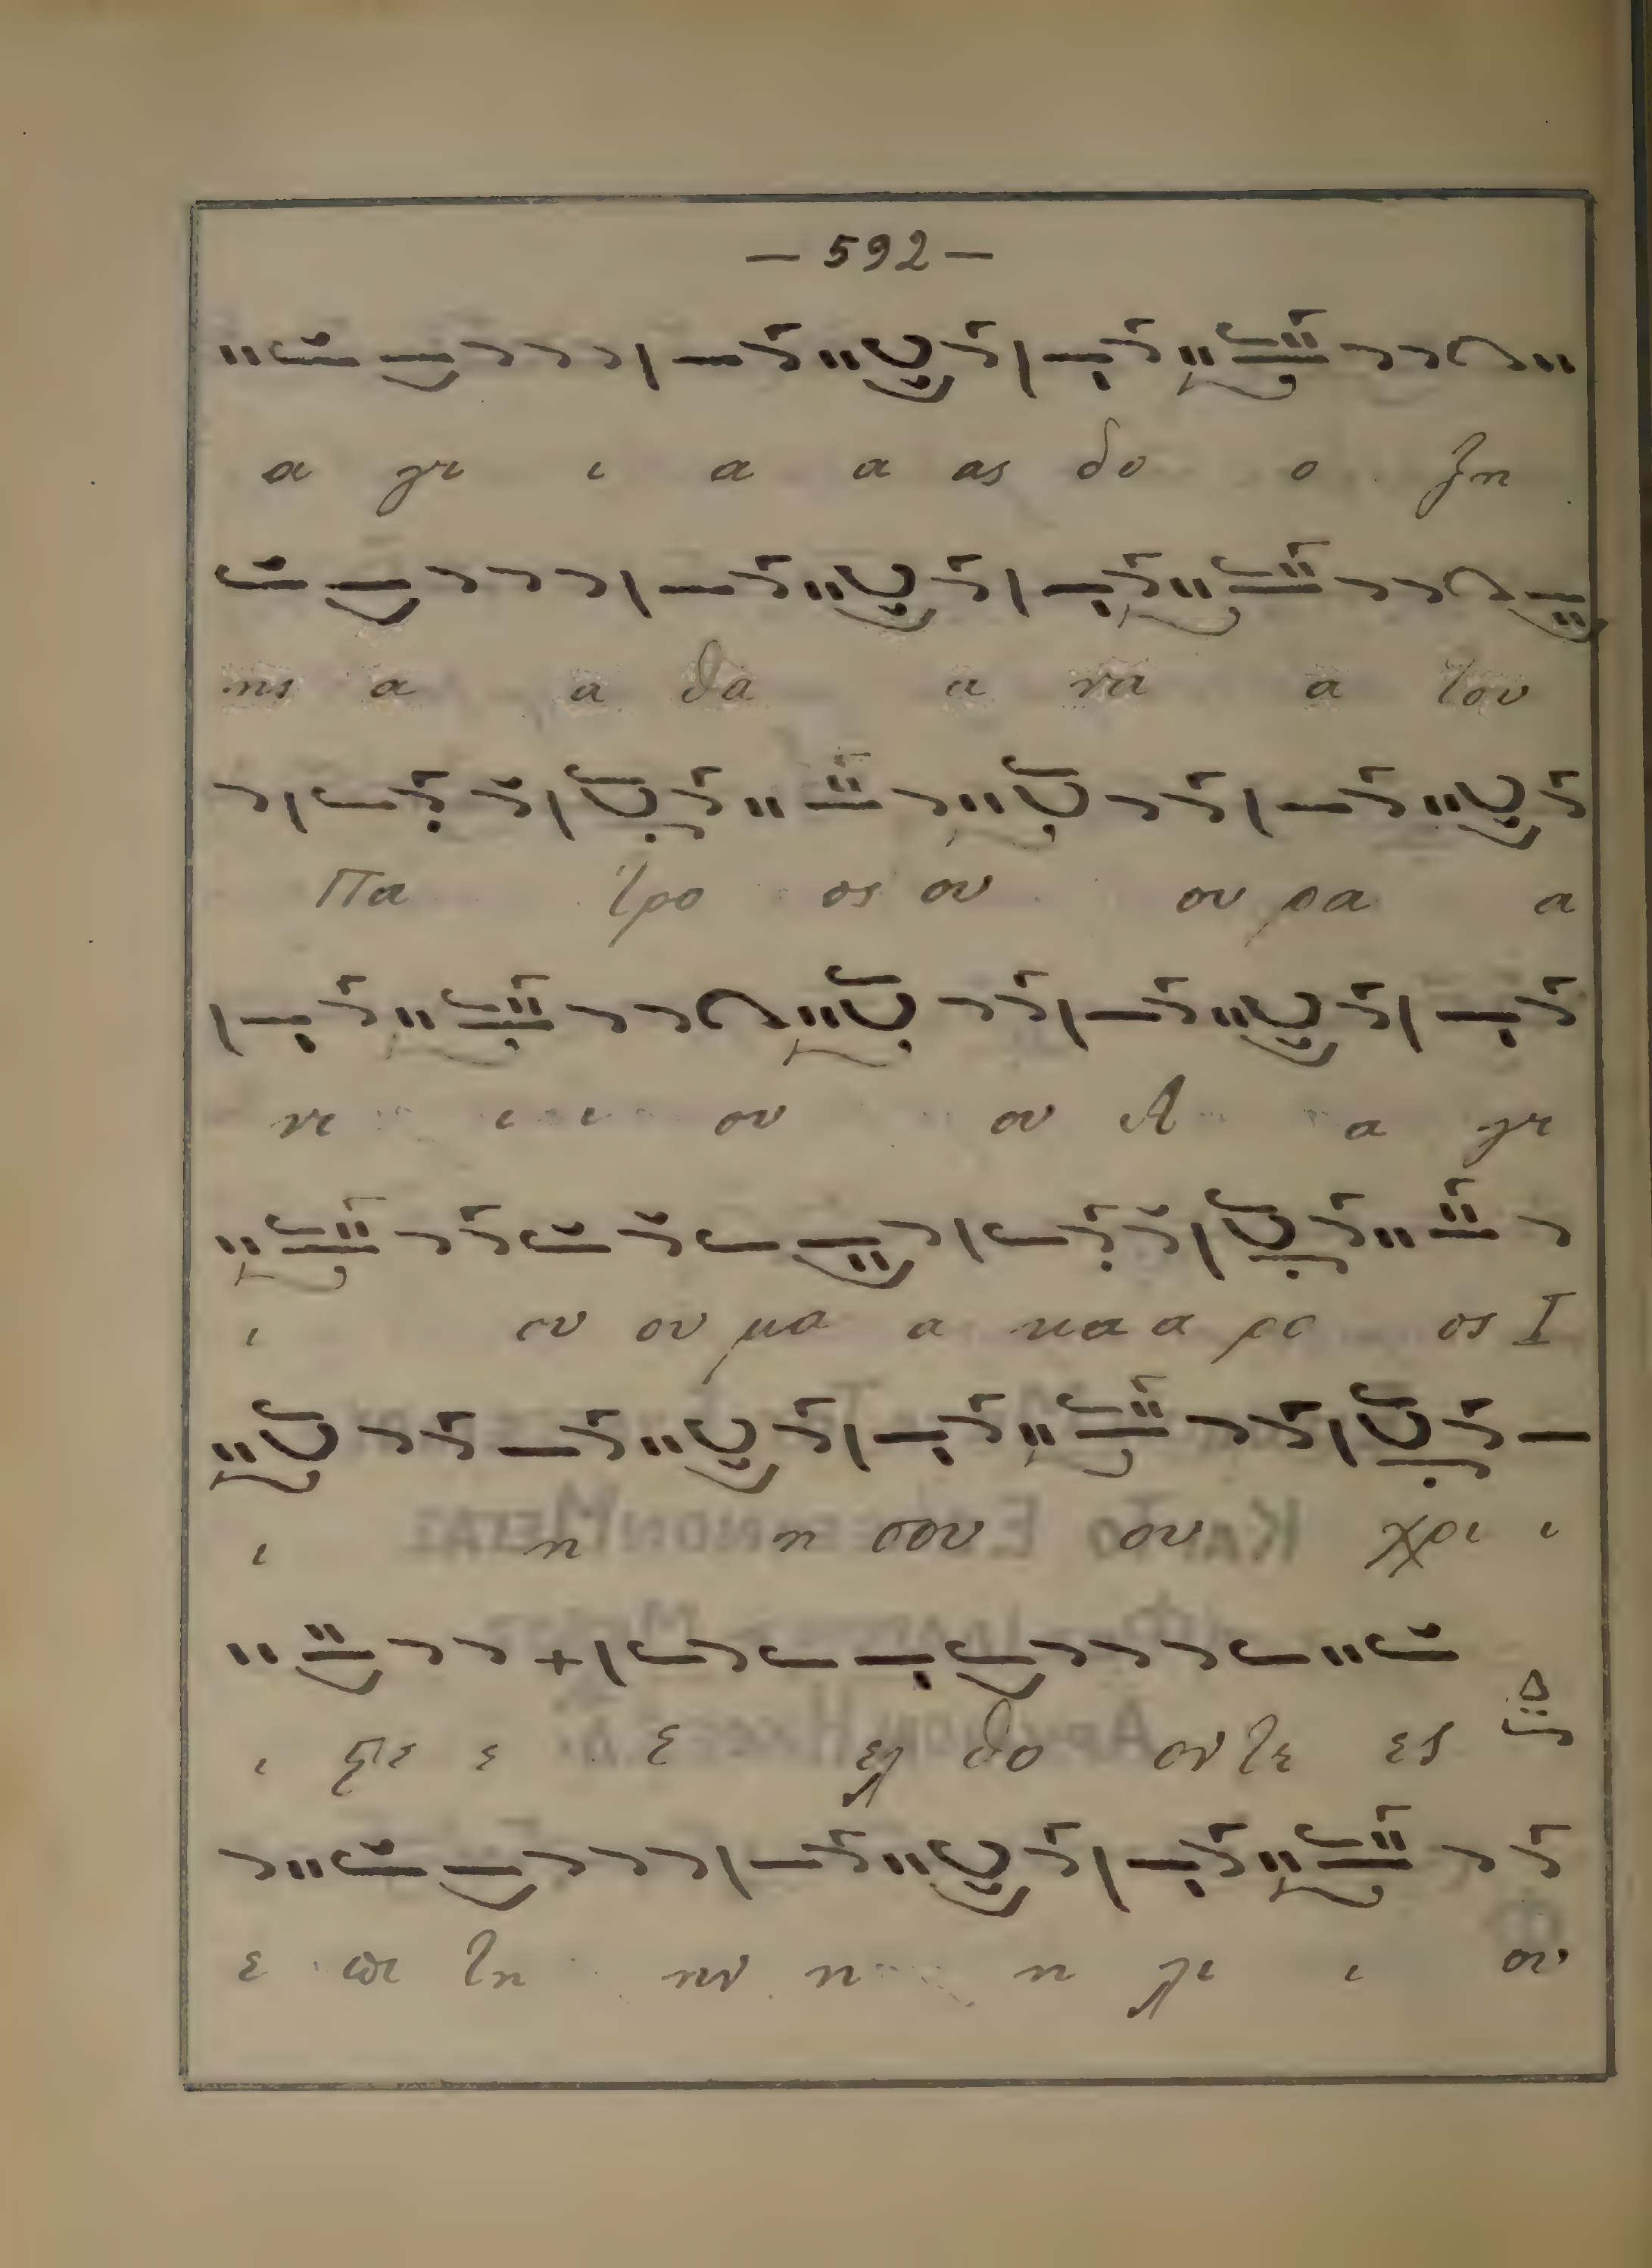 — 592 —
α γι ι α α ας δο ο ξη
ης α α θα α να α του
Πα τρο ος ου ου ρα α
νι ι ι ου ου Α α γι
ι ου ου μα α κα α ρο ος Ι
ι η η σου ου χρι ι
ι στε ε ε ελ θο οντε ες
ε πι τη ην η η λι ι ου